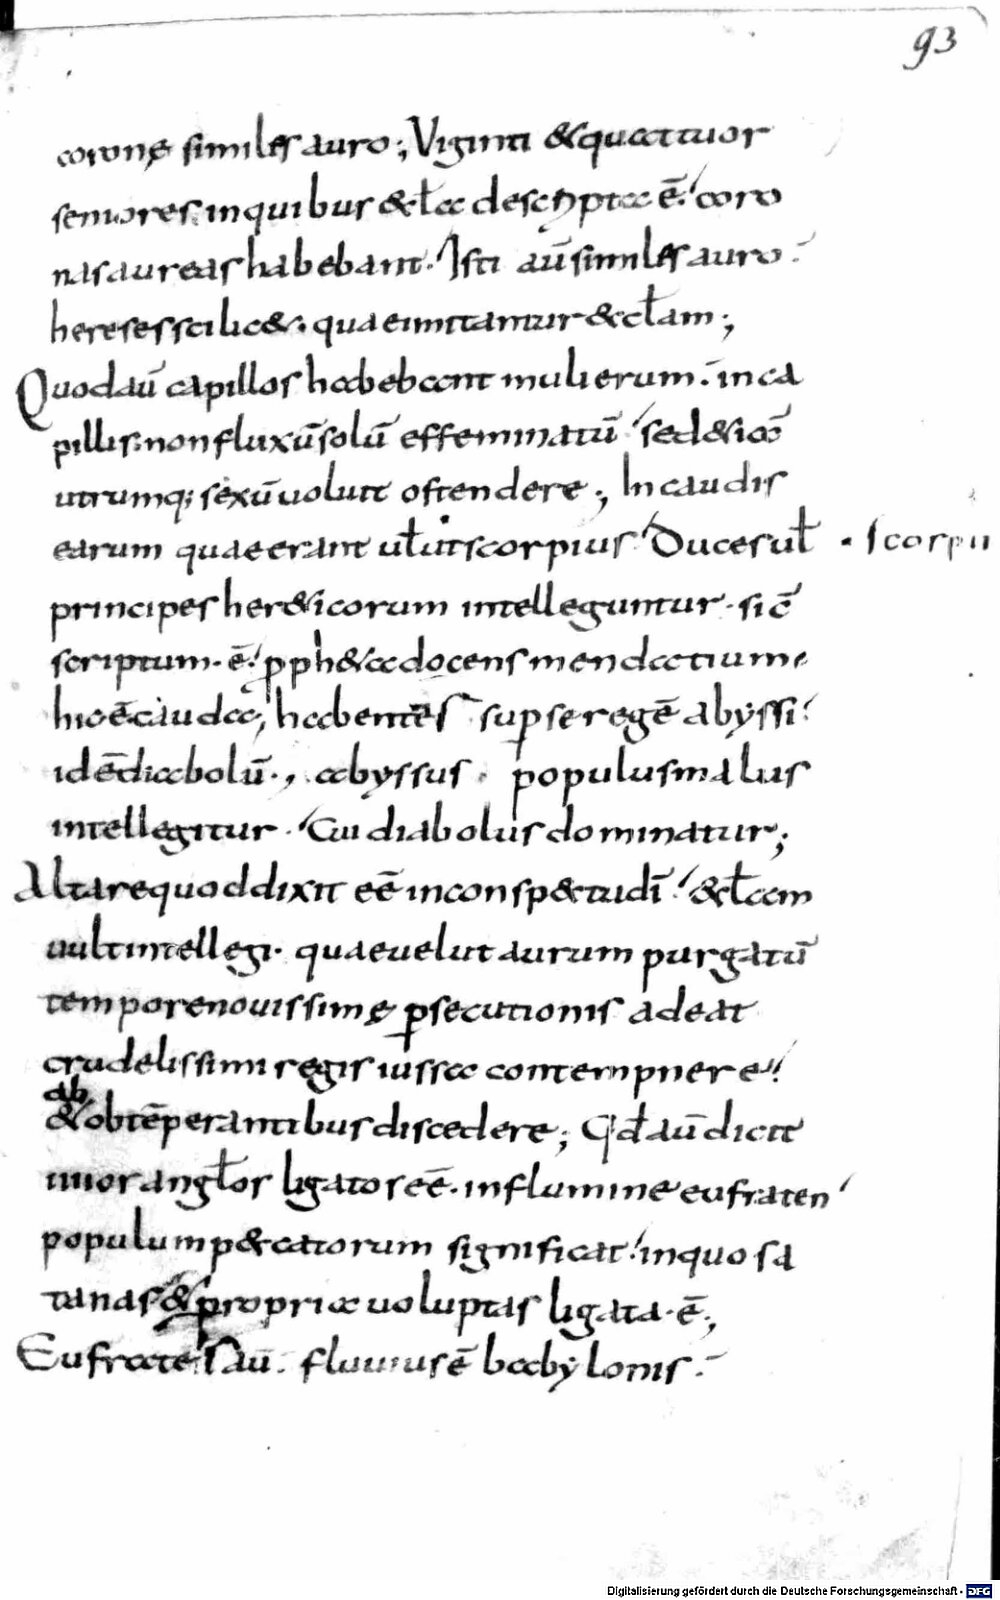 93
coronę similes auro; Viginti & quattuor
seniores. in quibus & ł a descripta ē. coro
nas aureas habebant. Isti aū similes auro.
hereses scilic&. quae imitantur & cłam;
Quod aū capillos habebant mulierum. in ca
pillis. non fluxū solū effeminatū sed &iā
utrumq; sexū uoluit ostendere; In caudis
earum quae erant uł ut scorpius Duces uł
· scorpii
principes her&icorum intelleguntur. sic̄
scriptum. ē. proph&a docens mendatium.
hic ē cauda, habentēs sup se regē abyssi.
id ē diabolū., abyssus. populus malus
intellegitur. Cui diabolus dominatur;
Altare quod dixit eē in consp&u dī. & ł am
uult intellegi. quae uelut aurum purgatū
tempore nouissimę psecutionis adeat
crudelissimi regis iussa contempnere.
ab
& obtēperantibus discedere; Qđ aū dicit
iiiior angłos ligatos eē. in flumine eufraten
populum p&catorum significat. in quo sa
tanas & propria uoluptas ligata. ē;
Eufrates aū. fluuius ē babylonis.
Digitalisierung gefördert durch die Deutsche Forschungsgemeinschaft - DFG